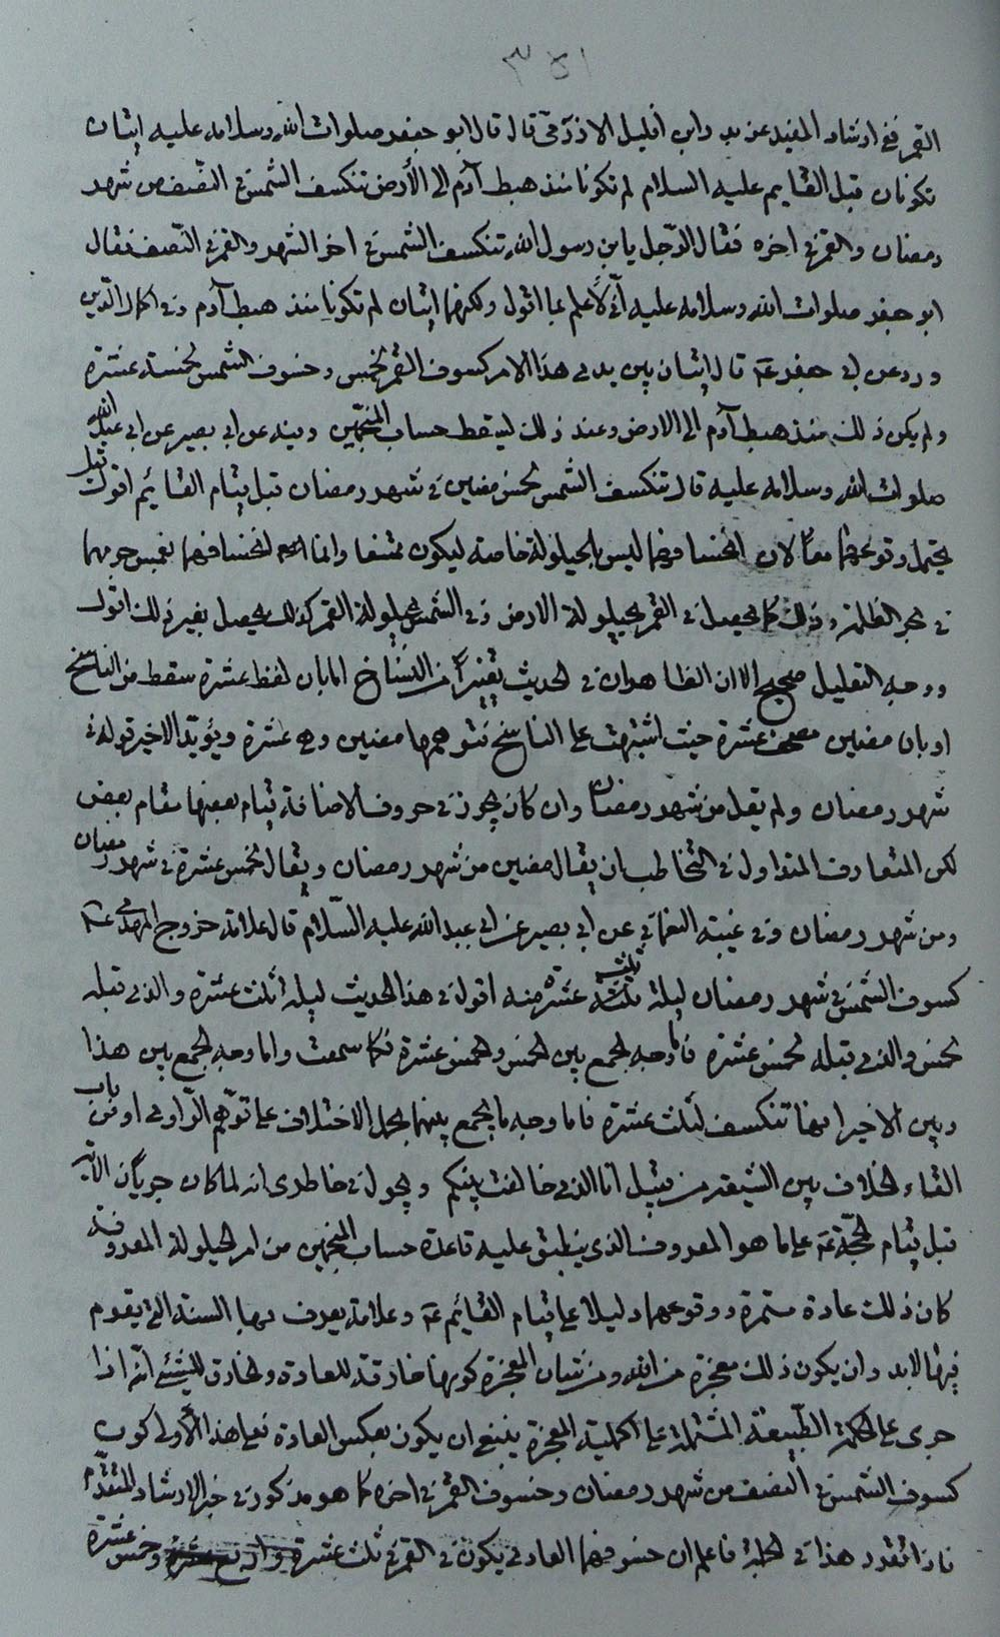 ٣٥١
القمر ففي ارشاد المفيد عن بدر ابن الخليل الازدي قال قال ابو جعفر صلوات الله وسلامه عليه ايتان
تكونان قبل القايم عليه السلام لم تكونا منذ هبط آدم الى الأرض تنكسف الشمس في النصف من شهر
رمضان والقمر في اخره فقال الرجل يابن رسول الله تنكسف الشمس في اخر الشهر والقمر في النصف فقال
ابو جعفر صلوات الله وسلامه عليه انّي لأعلم بما اقول ولكنهما ايتان لم تكونا منذ هبط آدم وفي اكمال الدّين
ورد عن ابي جعفر عم قال ايتان بين يدي هذا الامر كسوف القمر لخمس وخسوف الشمس لخمسة عشرة
ولم يكن ذلك منذ هبط آدم الى الارض وعند ذلك ليسقط حساب المنجّمين وفيه عن ابي بصير عن ابي عبد الله
صلوات الله وسلامه عليه قال تنكسف الشمس لخمس مضين في شهر رمضان قبل قيام القائم اقول قبل
يحتمل وقوعهما معاً لان انخسافهما ليس بالحيلولة خاصة ليكون ممتنعا وانما انخسافهما لغمس جرمهما
في بحر الظلمة وذلك كما يحصل في القمر بحيلولة الارض وفي الشمس بحيلولة القمر كذلك يحصل بغير ذلك اقول
ووجه التعليل صحيح الا ان الظاهر ان في الحديث تغييراً من النسّاخ اما بان لفظ عشرة سقط من الناسخ
او بان مضين مصحف عشرة حيث اشتبهت على الناسخ فتوهمها مضين وهي عشرة ويؤيّد الاخير قوله في
شهر رمضان ولم يقل من شهر رمضان وان كان يجوز في حروف الاضافة قيام بعضها مقام بعض
لكن المتعارف المتداول في التخاطب ان يقال مضين من شهر رمضان ويقال لخمس عشرة في شهر رمضان
ومن شهر رمضان وفي غيبة النعماني عن ابي بصير عن ابي عبد الله عليه السّلام قال علامة خروج المهدي عم
كسوف الشمس في شهر رمضان ليلة ثلث عشرة منه اقول في هذا الحديث ليلة ثلث عشرة والذي قبله
لخمس والذي قبله لخمس عشرة فاما وجه الجمع بين الخمس والخمس عشرة فكما سمعت واما وجه الجمع بين هذا
وبين الاخير انها تنكسف لثلث عشرة فاما وجه ما يجمع بينهما بحمل الاختلاف على توهّم الرّاوي او من باب
القاء الخلاف بين الشيعة من قبيل انا الذي خالفت بينكم ويجول في خاطري انه لما كان جريان الآية
قبل قيام الحجّة عم على ما هو المعروف الذي ينطبق عليه قاعدة حساب المنجمين من امر الحيلولة المعروفة
كان ذلك عادة مستمرة ووقوعهما دليلا على قيام القائم عم وعلامة يعرف بها السنة التي يقوم
فيها لابد وان يكون ذلك معجزة من الله ومن شان المعجزة كونها خارقة للعادة والخارق للشئ انه اذا
جرى على الحكمة الطّبيعيّة المشتملة على اكملية المعجزة ينبغي ان يكون بعكس العادة فعلى هذا الأولى كون
كسوف الشمس في النصف من شهر رمضان وخسوف القمر في اخره كما هو مذكور في خبر الارشاد المتقدّم
فاذا تقرر هذا في الجملة فاعلم ان خسوفهما العادي يكون في القمر في ثلث عشرة واربع عشرة وخمس عشرة